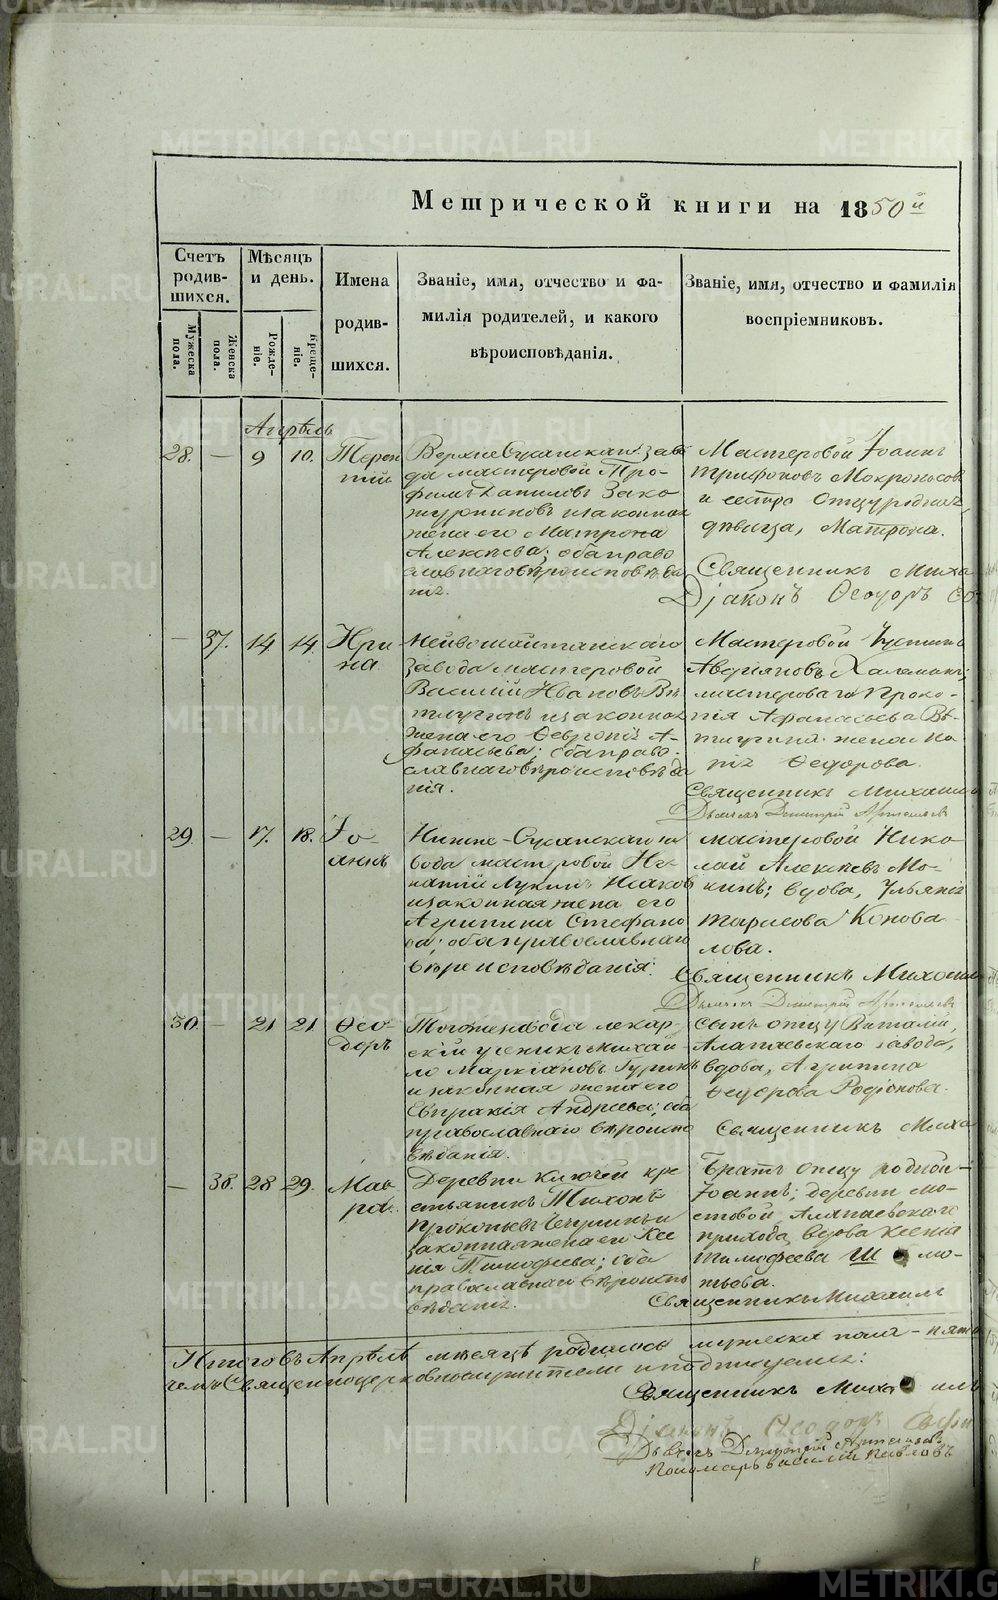 METRIKI.GASO-URAL.RU
Метрической книги на 1850й
Счетъ родив-шихся.
Мужеска пола.
Женска пола.
Мѣсяцъ и день.
Рожде-ніе.
Креще-ніе.
Имена родив-шихся.
Званіе, имя, отчество и фа-
милія родителей, и какого
вѣроисповѣданія.
Званіе, имя, отчество и фамилія
воспріемниковъ.
Апрѣль
28. — 9 10. Терен
тий
Верхне Сусанскаго заво
да мастеровой Тро-
фимъ Даниловъ Зако
журниковъ и законная
жена его Матрона
Алексѣева; оба право
славнаго вѣроисповѣда
нія.
Мастеровой Іоаннъ
Трифоновъ Мокроносов
и сестра отцу родная,
дѣвица, Матрона.
Священникъ Миха
Діаконъ Ѳеодоръ
— 37. 14 14. Ири
на
Нейвошайтанскаго
завода мастеровой
Василій Ивановъ Вѣ
тлугинъ и законная
жена его Ѳевронія А-
фанасьева; оба право-
славнаго вѣроисповѣда
нія.
Мастеровой Устинъ
Аверіяновъ
мастероваго Проко-
пія Афанасьева Вѣ-
тлугина жена
Ѳедорова.
Священникъ Михаилъ
Дьячекъ Дмитрій Артемьевъ
29. — 17. 18. Іо-
аннъ
Нижне-Сусанскаго за
вода мастеровой Иг-
натій Лукинъ Исаков
и законная жена его
Агрипина Стефано
ва; оба православнаго
вѣроисповѣданія.
мастеровой Нико
лай Алексѣевъ Мо-
кинъ; вдова, Ульянія
Тарасова Конова
лова.
Священникъ Михаилъ
Дьячекъ Дмитрій Артемьевъ
30. — 21 21 Ѳео
доръ
Тогоже завода лекар-
скій ученикъ Михай
ло Маркіановъ Гуринъ
и законная жена его
Евпраксія Андреева; оба
православнаго вѣроиспо
вѣданія.
Сынъ отцу Виталій,
Алапаевскаго завода,
вдова, Агрипина
Ѳедорова Родіонова.
Священникъ Миха
— 38. 28 29. Мав
ра.
Деревни Ключей кре
стьянинъ Тихонъ
Прокопьевъ Чечулинъ и
законная жена его Ксе
нія Тимофеева; оба
православнаго вѣроиспо
вѣданія.
Братъ отцу родной
Іоаннъ; деревни Мо-
стовой Алапаевскаго
прихода вдова Ксенія
Тимофеева
Священникъ Михаилъ
Итого въ Апрѣлѣ мѣсяцѣ родилось мужеска пола - пять
чемъ Священноцерковнослужители и подписуемся:
Священникъ Михаилъ
Діаконъ Ѳеодоръ
Дьячекъ Дмитрій Артемьевъ
Пономарь Василій Павловъ